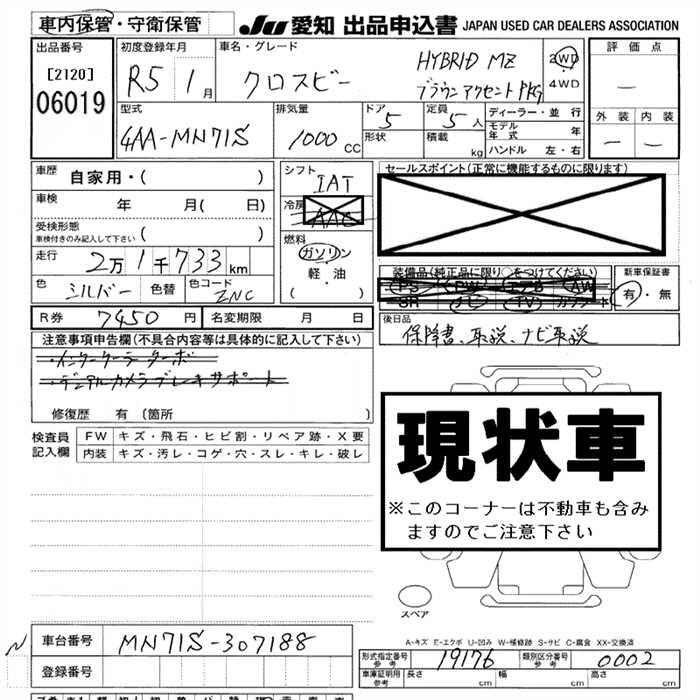 車内保管・守衛保管
JU 愛知 出品申込書 JAPAN USED CAR DEALERS ASSOCIATION
出品番号
[2120]
06019
初度登録年月
R5 1月
車名・グレード
クロスビー
HYBRID MZ
ブラウンアクセントPKG
2WD
4WD
評価点
—
外装 内装
— —
型式
4AA-MN71S
排気量
1000 CC
ドア 5
形状
定員 5人
積載 kg
ディーラー・並行
モデル年式 年
ハンドル 左・右
車歴 自家用・( )
車検 年 月( 日)
受検形態
車検付きのみ記入して下さい ( )
走行 2万1千733km
色 シルバー 色替 色コード ZNC
シフト IAT
冷房 AAC
燃料
ガソリン
軽・油
( )
セールスポイント(正常に機能するものに限ります)
装備品(純正品に限り○をつけてください)
PS PW エアB AW
SR TV カワシート
新車保証書
有・無
R券 7450円 名変期限 月 日
後日品
保障書、取説、ナビ取説
注意事項申告欄(不具合内容等は具体的に記入して下さい)
・インタークーラーターボー
・デュアルカメラブレーキサポート
修復歴 有 (箇所 )
検査員記入欄
FW キズ・飛石・ヒビ割・リペア跡・X要
内装 キズ・汚レ・コゲ・穴・スレ・キレ・破レ
現状車
※このコーナーは不動車も含み
ますのでご注意下さい
スペア
A-キズ E-エクボ U-凹み W-補修跡 S-サビ C-腐食 XX-交換済
車台番号 MN71S-307188
登録番号
形式指定番号 参考 19176
類別区分番号 参考 0002
車庫証明用 参考 長さ cm 幅 cm 高さ cm